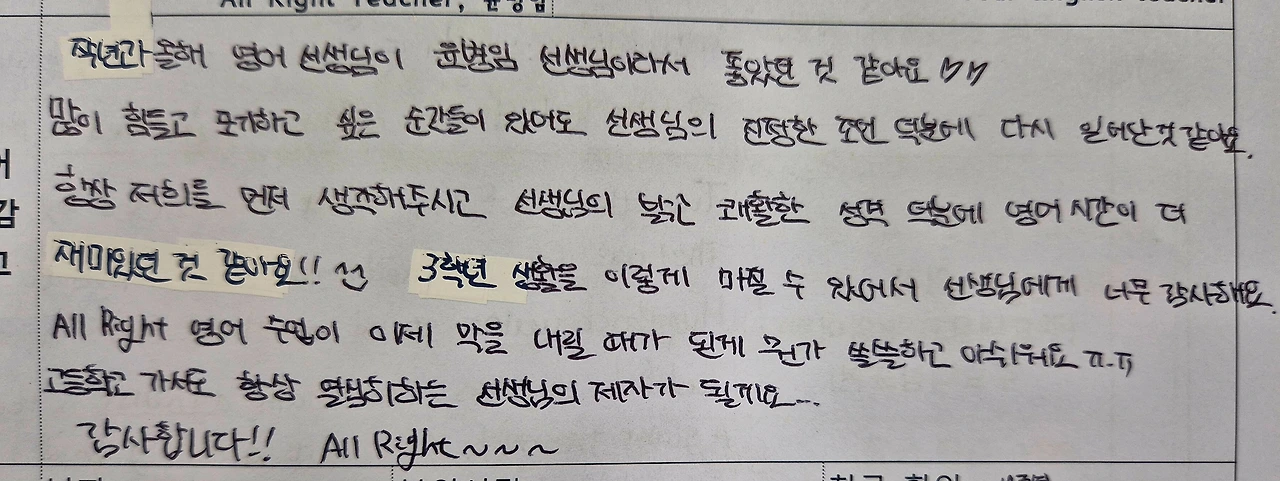 All Right Teacher,
English teacher
작년과 올해 영어 선생님이 윤병임 선생님이라서 좋았던 것 같아요 ㅎㅎ
많이 힘들고 포기하고 싶은 순간들이 있어도 선생님의 진정한 조언 덕분에 다시 일어난것 같아요.
항상 저희를 먼저 생각해주시고 선생님의 밝고 쾌활한 성격 덕분에 영어 시간이 더
재미있던 것 같아요!!
3학년 생활을 이렇게 마칠 수 있어서 선생님에게 너무 감사해요.
All Right 영어 수업이 이제 막을 내릴 때가 된게 뭔가 쓸쓸하고 아쉬워요 ㅠ.ㅠ
고등학교 가서도 항상 열심히하는 선생님의 제자가 될게요...
감사합니다!! All Right~~~